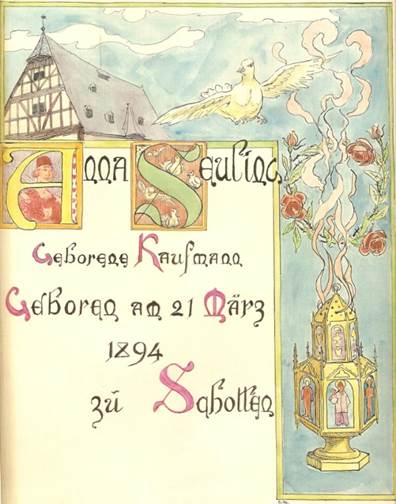 Anna Seuling
Geborene Kaufmann
Geboren am 21 März
1894
zu Schotten